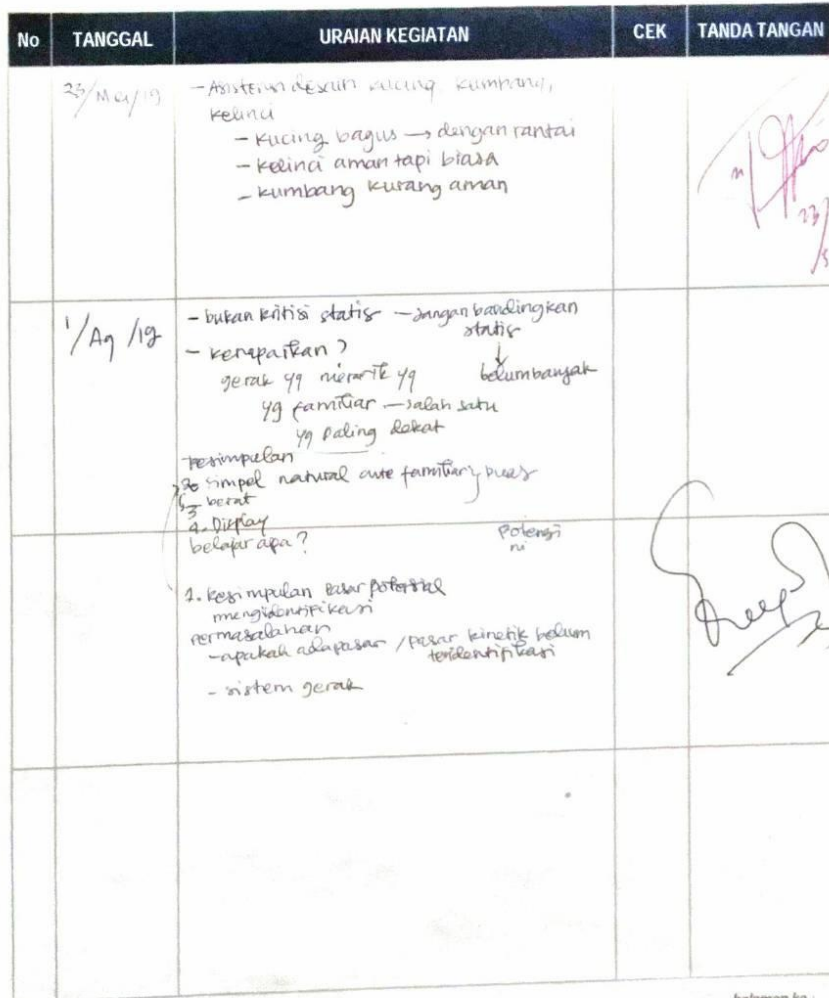 No TANGGAL URAIAN KEGIATAN CEK TANDA TANGAN
23/Mei/19
- Asistensi desain kucing kumbang,
kelinci
- kucing bagus → dengan rantai
- kelinci aman tapi biasa
- kumbang kurang aman
23/5
1/Ag/19
- bukan kritisi statis - jangan bandingkan
statis
↓
belum banyak
- kenapa ikan?
gerak yg menarik yg
yg familiar - salah satu
yg paling dekat
kesimpulan
simpel natural cute familiar
3 berat
4. Display
belajar apa?
Potensi
1. kesimpulan pasar potensial
mengidentifikasi
permasalahan
- apakah ada pasar / pasar kinetik belum
teridentifikasi
- sistem gerak
halaman ke